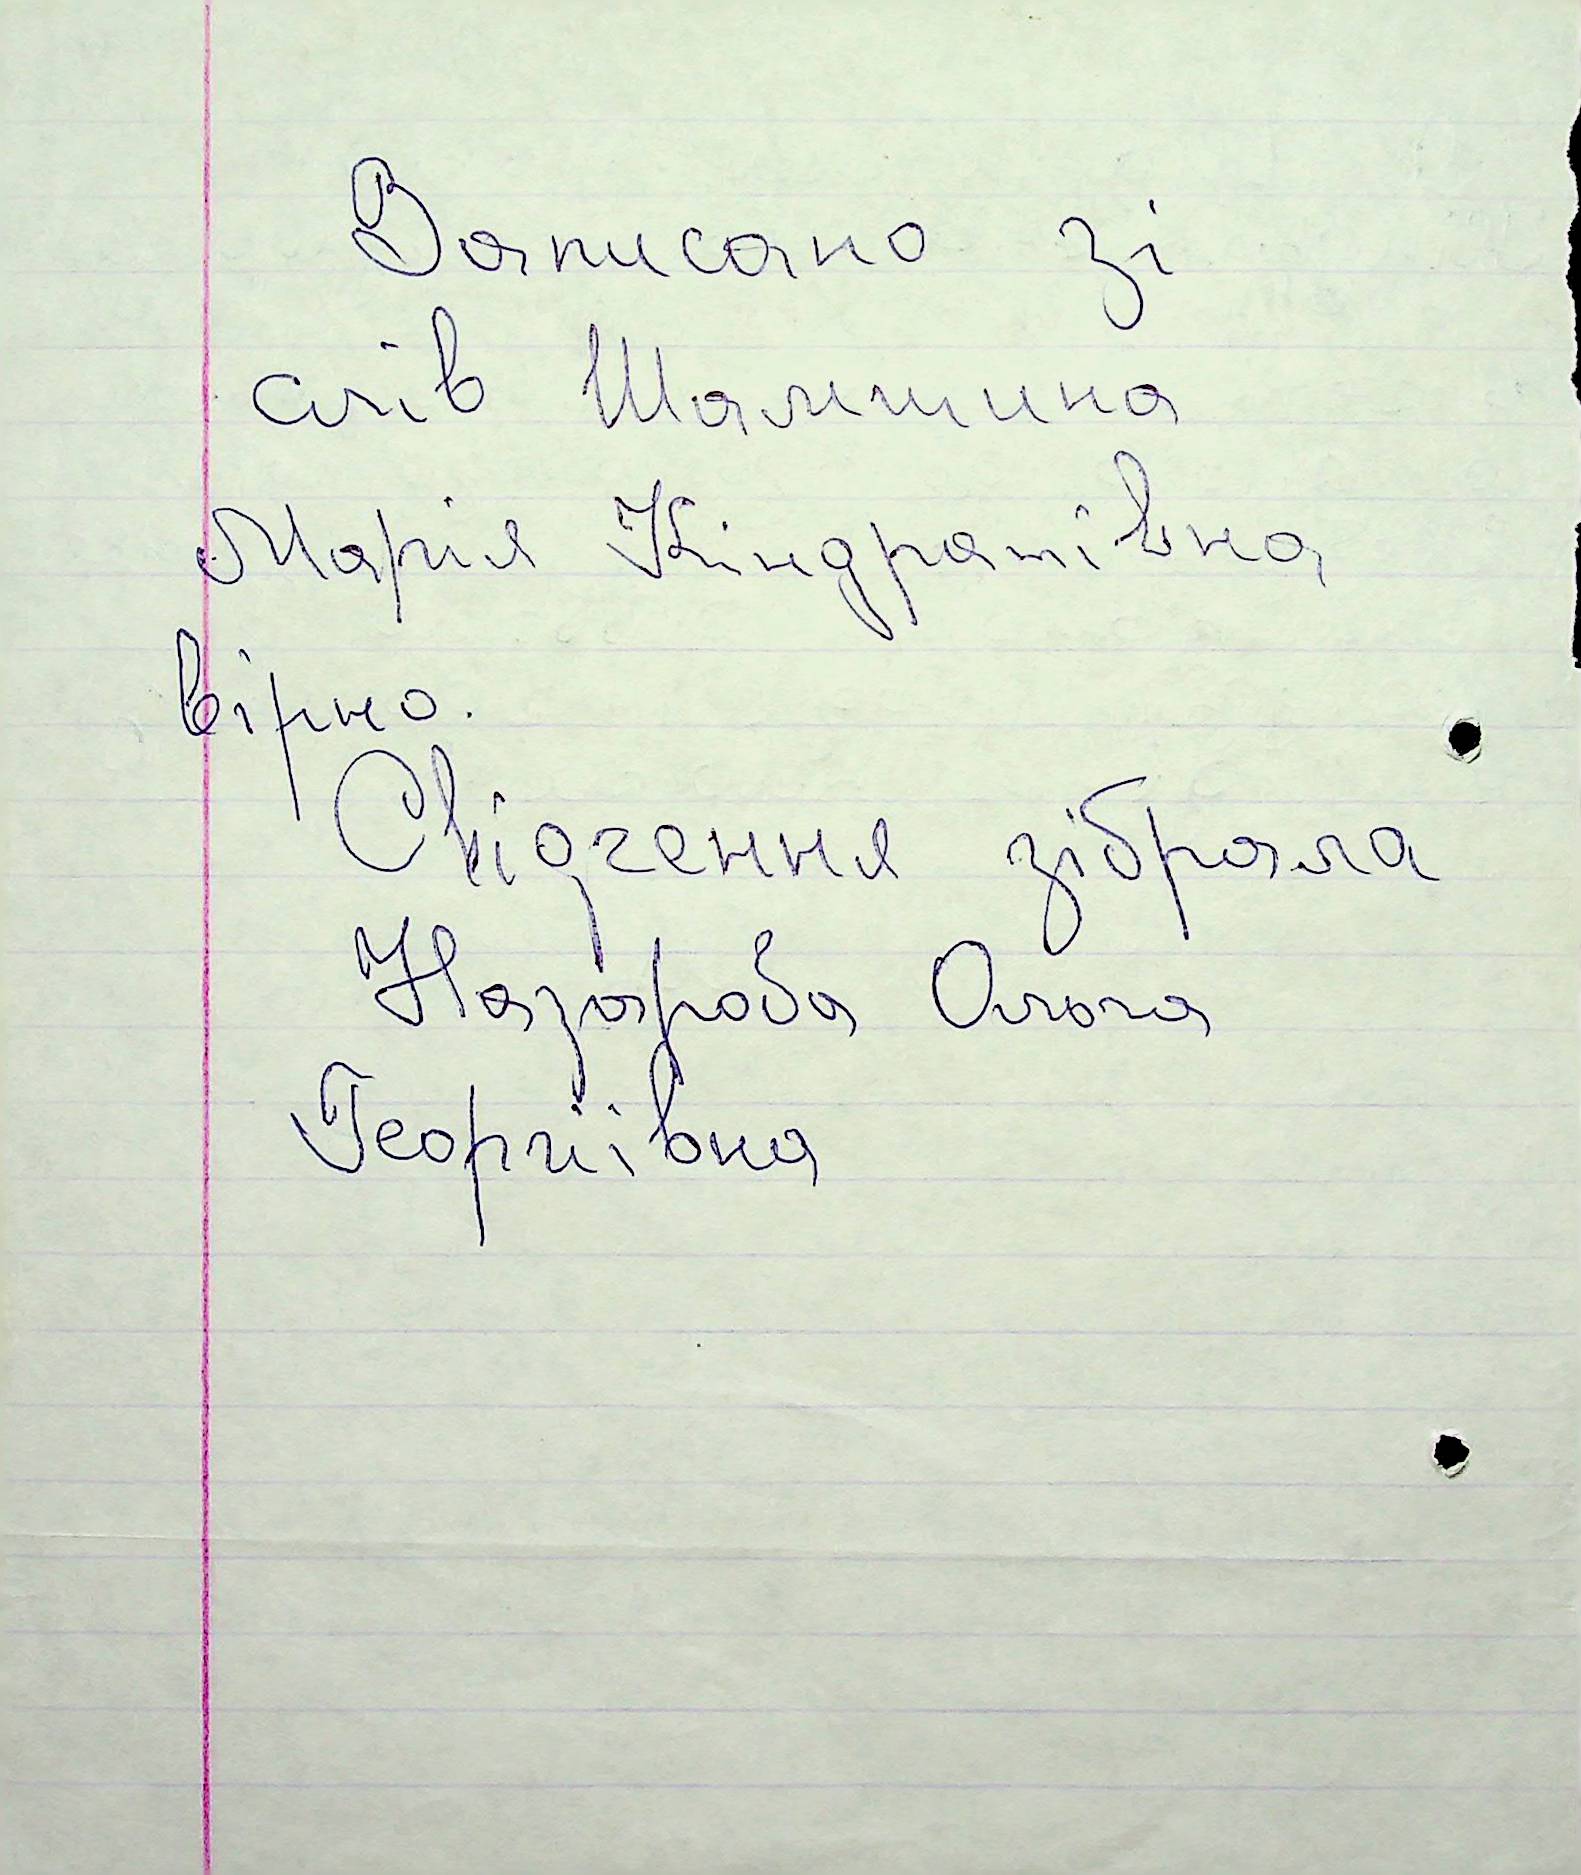 Записано зі
слів Шамшина
Марія Кіндратівна
вірно.
Свідчення зібрала
Назарова Ольга
Георгіївна